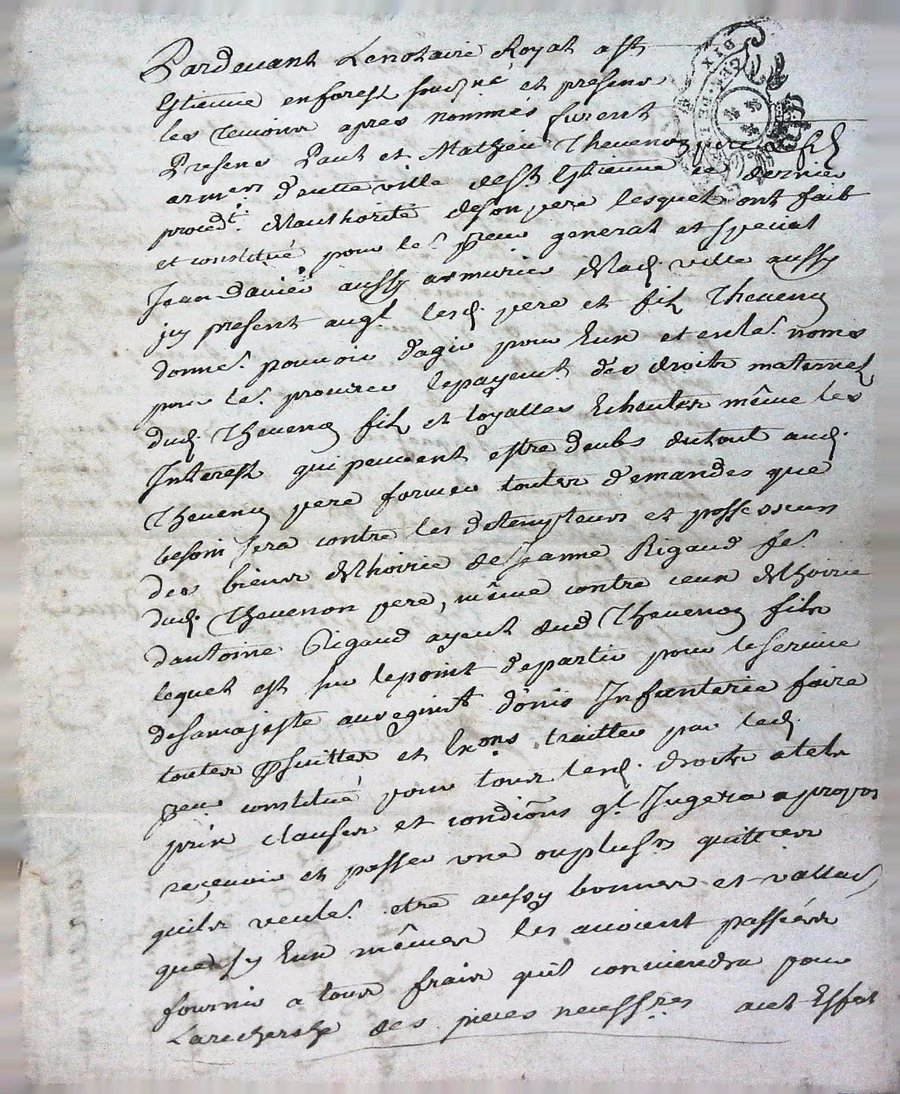 Pardevant Lenotaire Royal a St
Estienne enforest sousigné et presens
les temoins apres nommés furent
Presens Paul et Mathieu Thevenon pere et fil
armurs d'cette ville de St Estienne ce dernier
proced.t D'lauthorité deson pere lesquels ont fait
et constitué pour le.r general et special
Jean davier aussy armurier D'lad. ville aussy
jcy present auql. lesd. pere et fil Thevenon
donnet pouvoir d'agir pour Eux et en le.r noms
pour le.r procurer lepayem.t des droits maternels
dud. Thevenon fil et loyalles Echeutes même les
Interest qui peuvent estre deubs dutout aud.
Thevenon pere former toutes demandes que
besoin sera contre les detempteurs et possesseurs
des biens D'lhoirie de Jeanne Rigaud fe.
dud. Thevenon pere, même contre ceux D'lhoirie
dantoine Rigaud ayeul dud Thevenon fils
lequel est sur lepoint departir pour leservice
desamajeste auregim.t d'onis Infanterie faire
toutes et traitter par led.
constitué pour tous lesd. droits atels
prix clauses et condiõns ql. Jugera apropos
reçevoir et passer une ouplus.rs quittces
quils veulet. etre aussy bonnes et vallab
que sy Eux mêmes les avoient passées
fournir a tous frais quil conviendra pour
Larecherche des pieces necess.res auct Effet
DIX DEN.